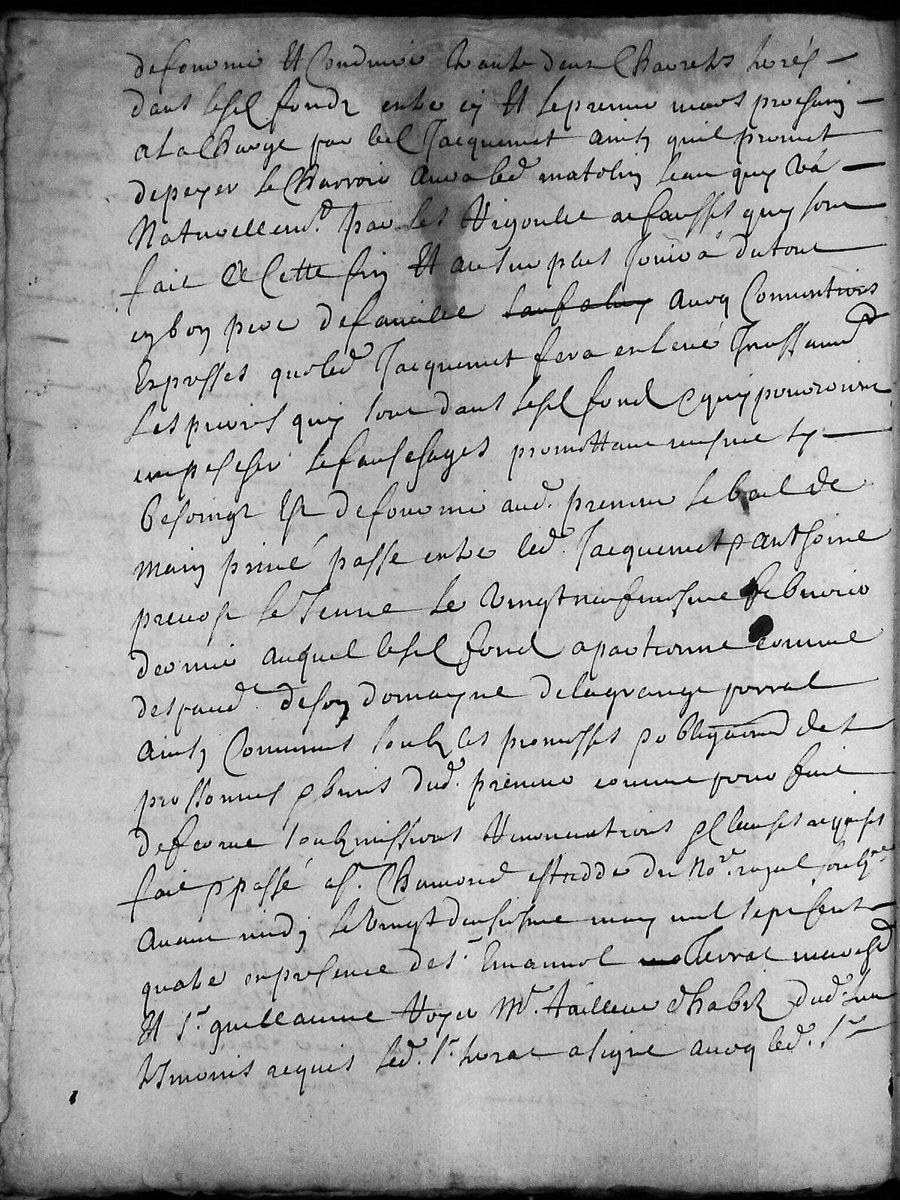 de fournir et Conduire trante deux Charrets
dans led. fondz entre cy et le premier mars prochain
a la Charge par led. Jacquemet ainsy quil promet
de payer le Charroir aura led. matolin leau quy va
Naturellemt. par les Rigoulle et fausses quy sont
fait a Cette fin et au surplus Jouira du tout
en bon pere de famille avoq Conventions
Expresses que led. Jacquemet fera enlevé
Les pierres quy sont dans led. fond & quy pourroient
empescher le fauchages promettant
besoingt est de fournir aud. premier le bail de
main privé passé entre led. Jacquemet & anthoine
prevost le Jeune le Vingt neufviesme febvrier
dernier auquel led. fond apartienne comme
despand. de son domayne de la grange
ainsy Convenus soubz les promesses & obligations de
personnes & biens dud. premier comme pour fait
de ferme soubzmissions Renonciations & Clauses requises
fait & passé a St. Chamond estudde du Nore. royal soubzne.
avant midy le Vingt deuxiesme may mil sept cent
quatre en presence de sr. Emanuel
Et sr. guillaume Royer Mre. tailleur d'habitz dud. lieu
tesmoins requis led. sr. a signé avoq led. sr.